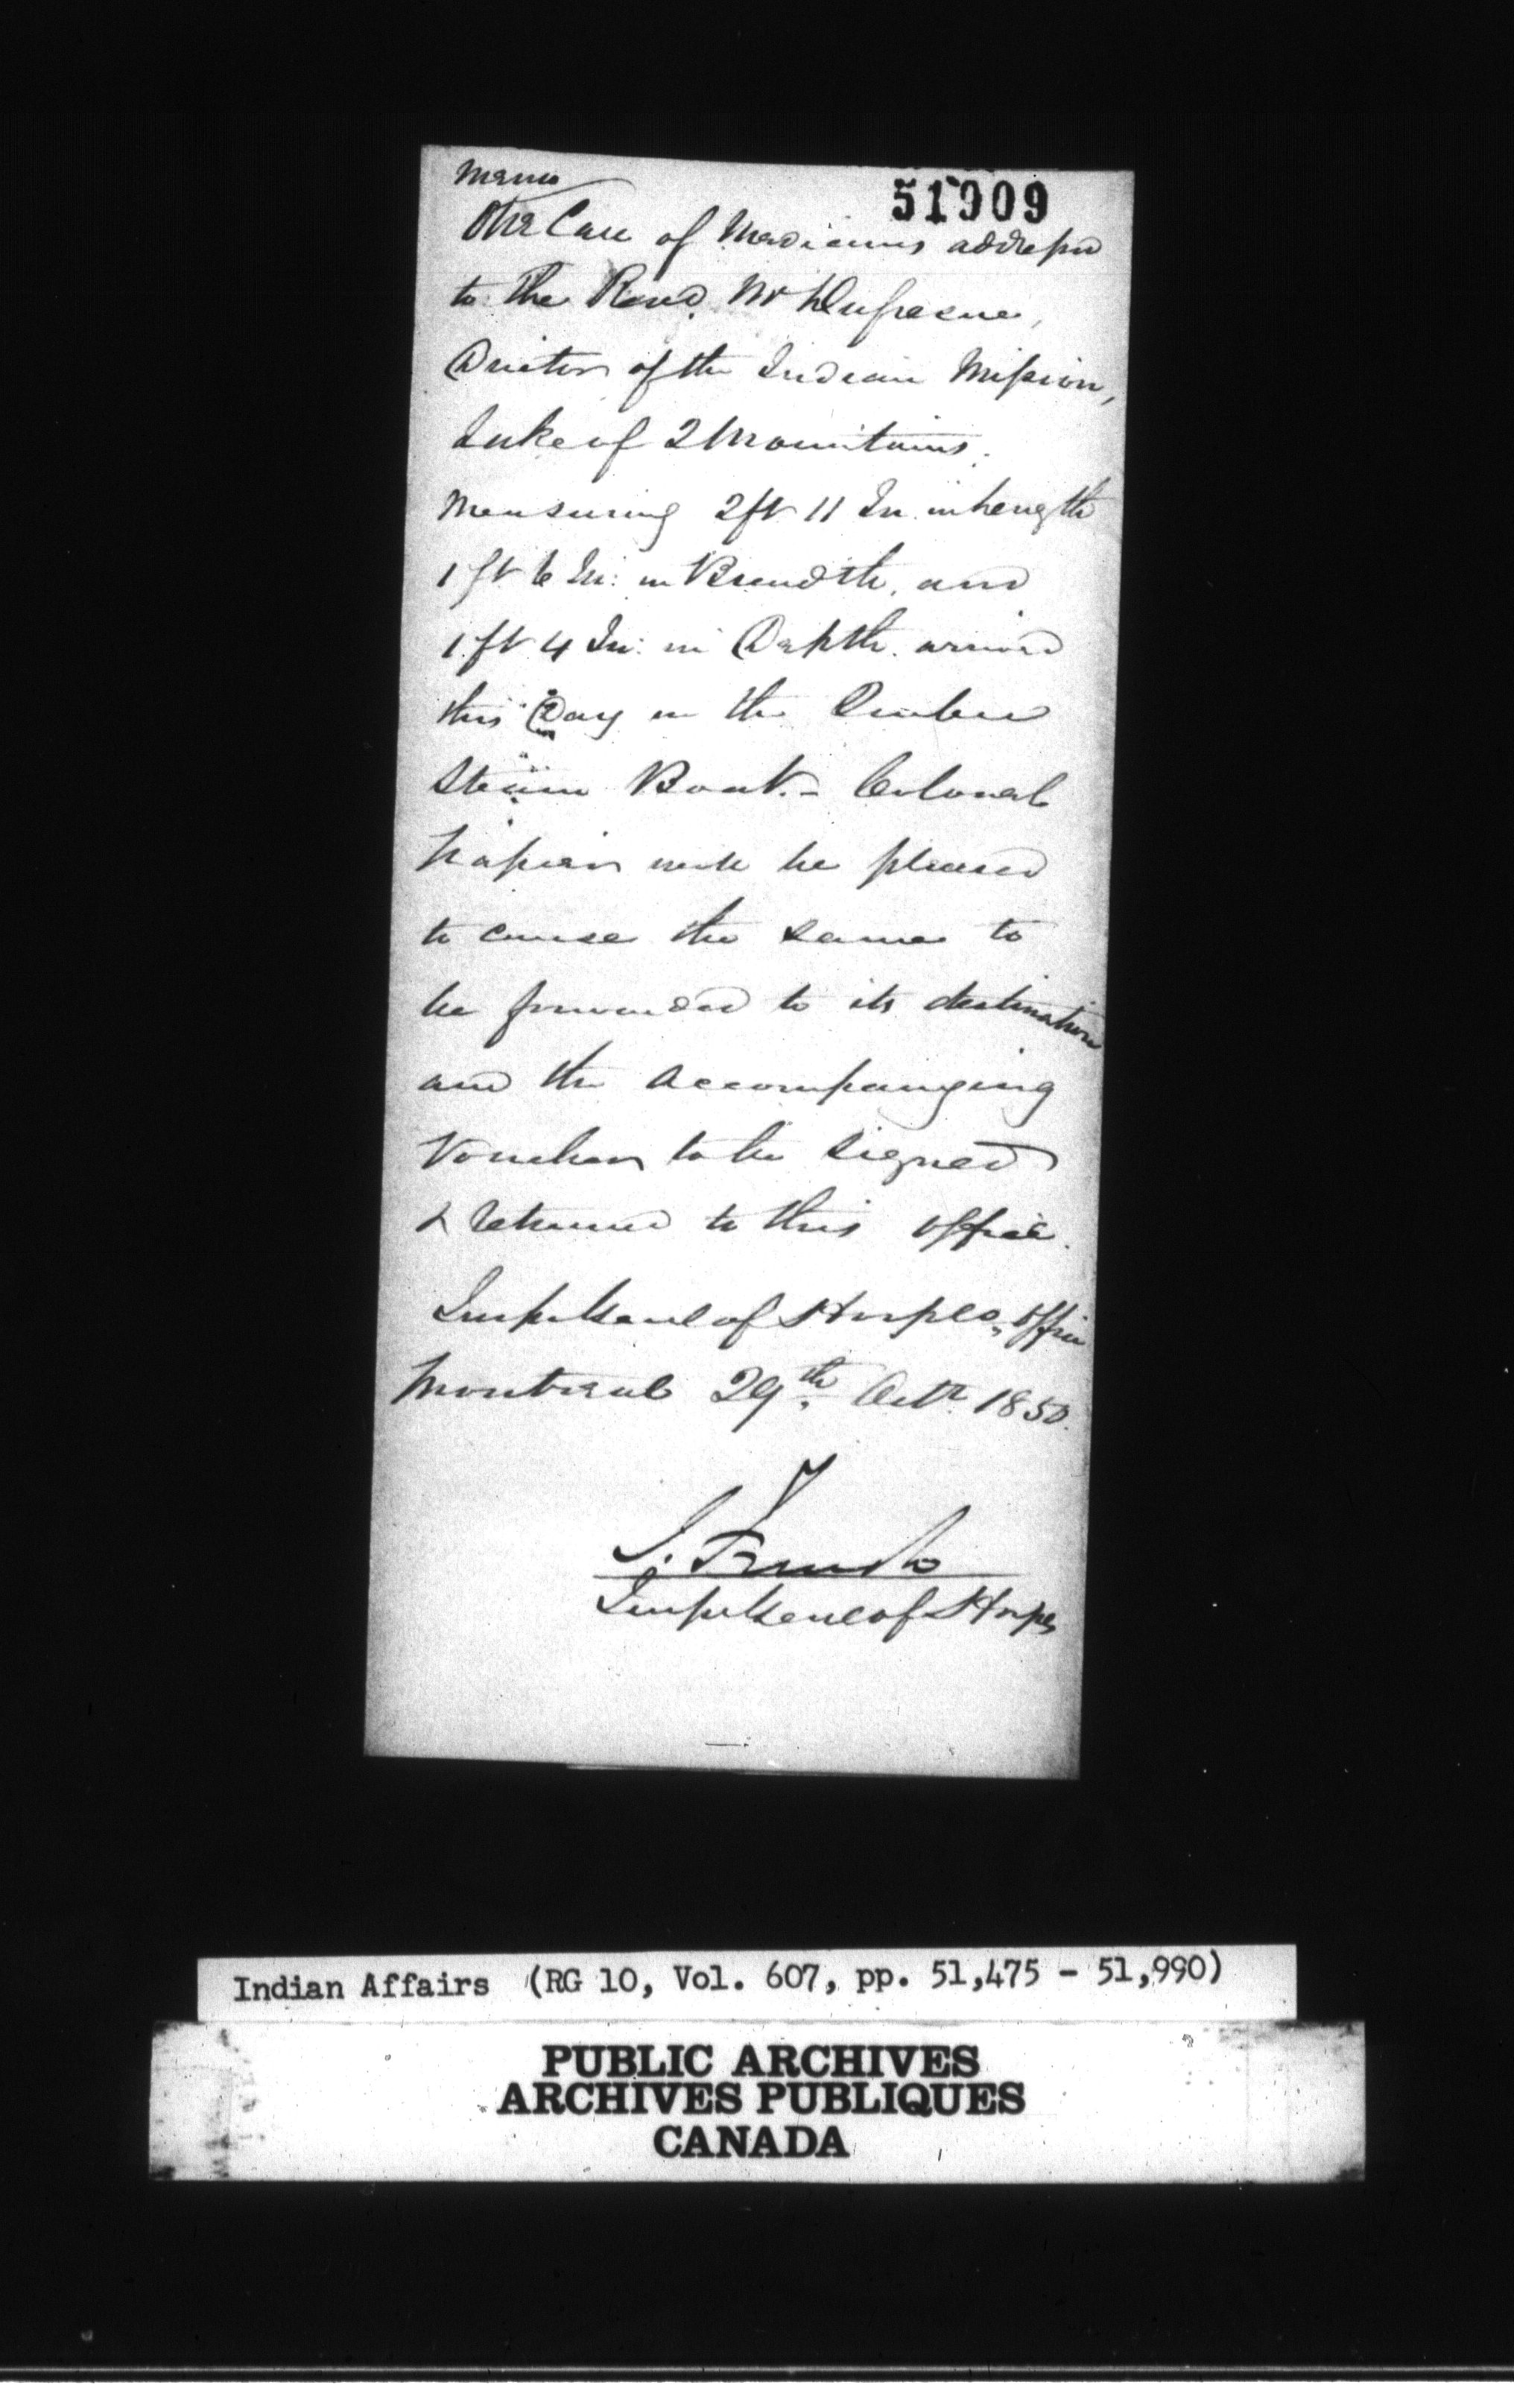 Memo
51909
One Case of Medicines addressed
to the Revd. Mr Dufresne,
Director of the Indian Mission,
Lake of 2 Mountains.
Measuring 2ft 11 In. in Length
1 ft 6 In: in Breadth, and
1 ft 4 In: in Depth. arrived
this Day in the Quebec
Steam Boat. - Colonel
Napier will be pleased
to cause the same to
be forwarded to its destination
and the accompanying
Voucher to be signed
& returned to this office.
of Office
Montreal 29th Octr 1850.
of
Indian Affairs (RG 10, Vol. 607, pp. 51,475 - 51,990)
PUBLIC ARCHIVES
ARCHIVES PUBLIQUES
CANADA